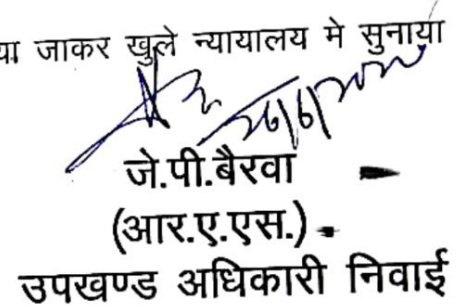 जाकर खुले न्यायालय मे सुनाया
जे.पी.बैरवा
(आर.ए.एस.)
उपखण्ड अधिकारी निवाई